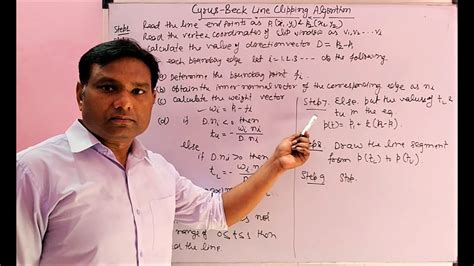 Cyrus-Beck Line Clipping Algorithm
Step1 Read the line end points as P₁(x₁,y₁) & P₂(x₂,y₂)
Read the vertex coordinates of clip window as V₁,V₂...
Calculate the value of direction vector D = P₂-P₁
each boundary edge let i=1,2,3... do the following
(a) Determine the boundary point fᵢ.
(b) Obtain the inner normal vector of the corresponding edge as nᵢ
(c) Calculate the weight vector
wᵢ = P₁ - fᵢ
(d) if D.nᵢ < 0 then
tᵤ = - wᵢ.nᵢ / D.nᵢ
else
if D.nᵢ > 0 then
t_L = - wᵢ.nᵢ / D.nᵢ
is not
range of 0≤t≤1 then
the line.
Step7. Else put the values of t_L &
tᵤ in the eq
p(t) = P₁ + t(P₂-P₁).
Step8 Draw the line segment
from p(t_L) to p(tᵤ).
Step9 Stop.